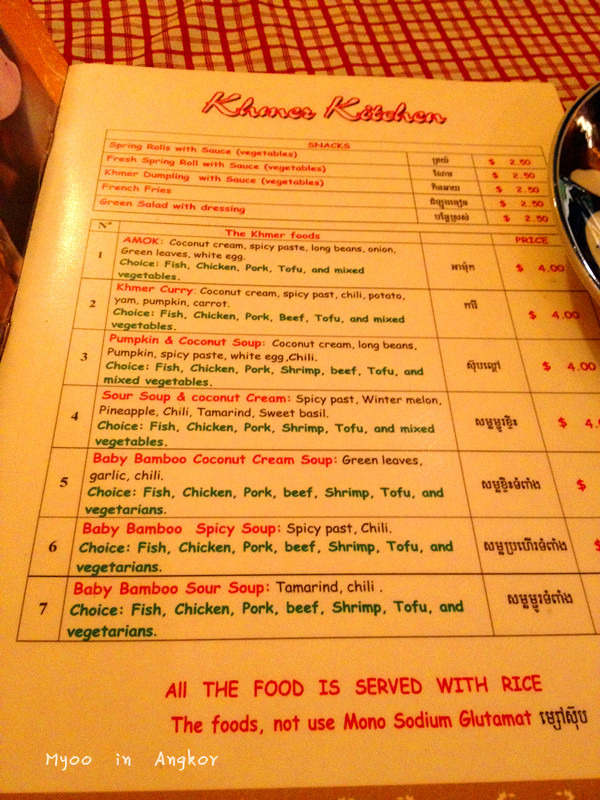 Khmer Kitchen
SNACKS
Spring Rolls with Sauce (vegetables) $ 2.50
Fresh Spring Roll with Sauce (vegetables) ណែម $ 2.50
Khmer Dumpling with Sauce (vegetables) $ 2.50
French Fries $ 2.50
Green Salad with dressing $ 2.50
Nº The Khmer foods PRICE
1 AMOK: Coconut cream, spicy paste, long beans, onion,
Green leaves, white egg.
Choice: Fish, Chicken, Pork, Tofu, and mixed
vegetables.
អាម៉ុក $ 4.00
2 Khmer Curry: Coconut cream, spicy past, chili, potato,
yam, pumpkin, carrot.
Choice: Fish, Chicken, Pork, Beef, Tofu, and mixed
vegetables.
ការី $ 4.00
3 Pumpkin & Coconut Soup: Coconut cream, long beans,
Pumpkin, spicy paste, white egg,Chili.
Choice: Fish, Chicken, Pork, Shrimp, beef, Tofu, and
mixed vegetables.
ស៊ុបល្ពៅ $ 4.00
4 Sour Soup & coconut Cream: Spicy past, Winter melon,
Pineapple, Chili, Tamarind, Sweet basil.
Choice: Fish, Chicken, Pork, Shrimp, Tofu, and mixed
vegetables.
សម្លម្ជូរខ្ទិះ $ 4.
5 Baby Bamboo Coconut Cream Soup: Green leaves,
garlic, chili.
Choice: Fish, Chicken, Pork, beef, Shrimp, Tofu, and
vegetarians.
សម្លខ្ទិះទំពាំង $
6 Baby Bamboo Spicy Soup: Spicy past, Chili.
Choice: Fish, Chicken, Pork, beef, Shrimp, Tofu, and
vegetarians.
សម្លប្រហើរទំពាំង $
7 Baby Bamboo Sour Soup: Tamarind, chili .
Choice: Fish, Chicken, Pork, beef, Shrimp, Tofu, and
vegetarians.
សម្លម្ជូរទំពាំង
All THE FOOD IS SERVED WITH RICE
The foods, not use Mono Sodium Glutamat ម្សៅស៊ុប
Myoo in Angkor